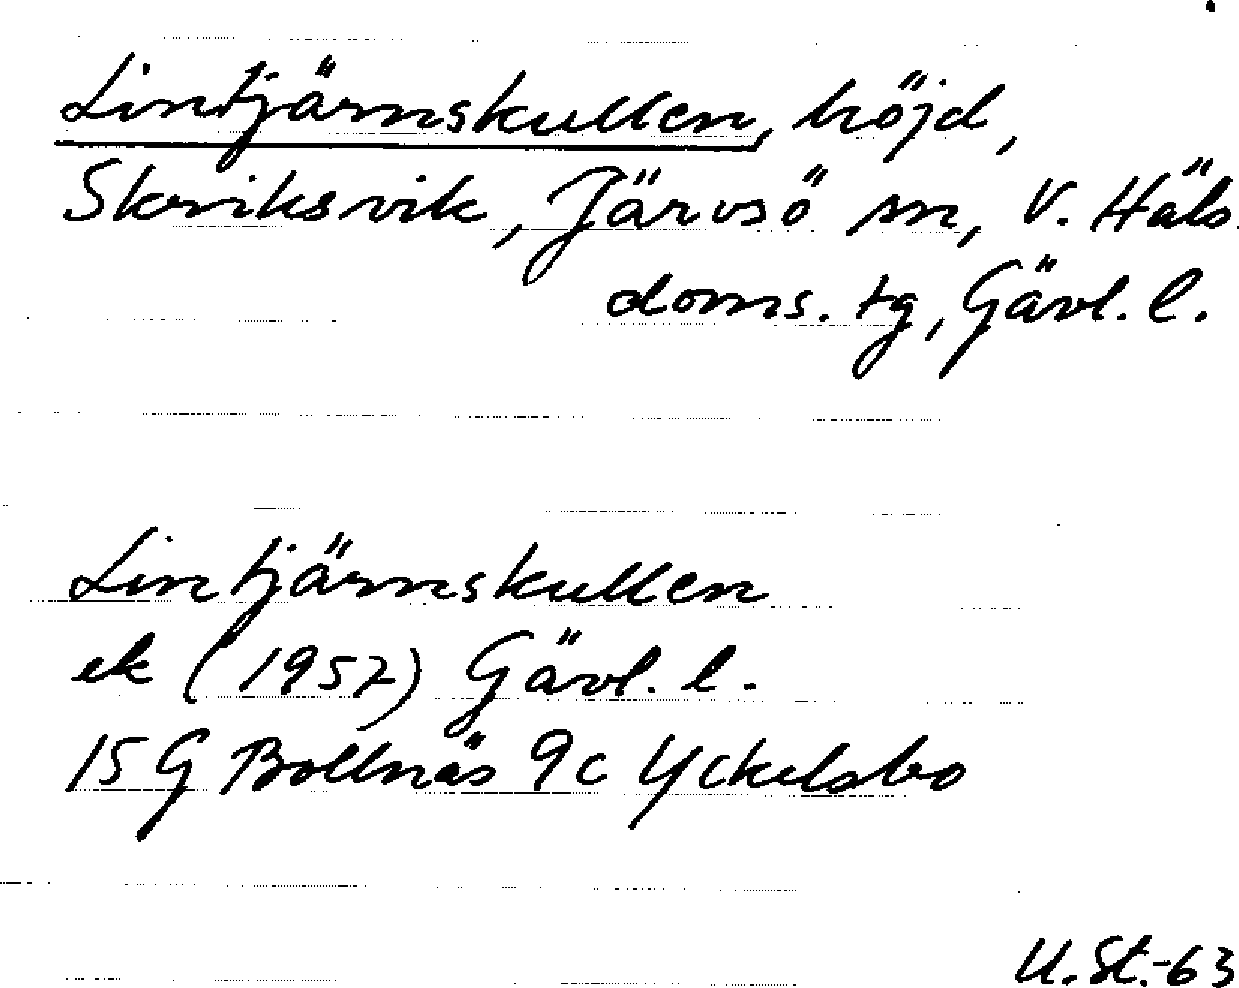 Lintjärnskullen, höjd,
Skriksvik, Järvsö sn, V. Häls.
doms. tg, Gävl. l.
Lintjärnskullen
ek (1957) Gävl. l.
15 G Bollnäs 9c Yckelsbo
U. St.-63